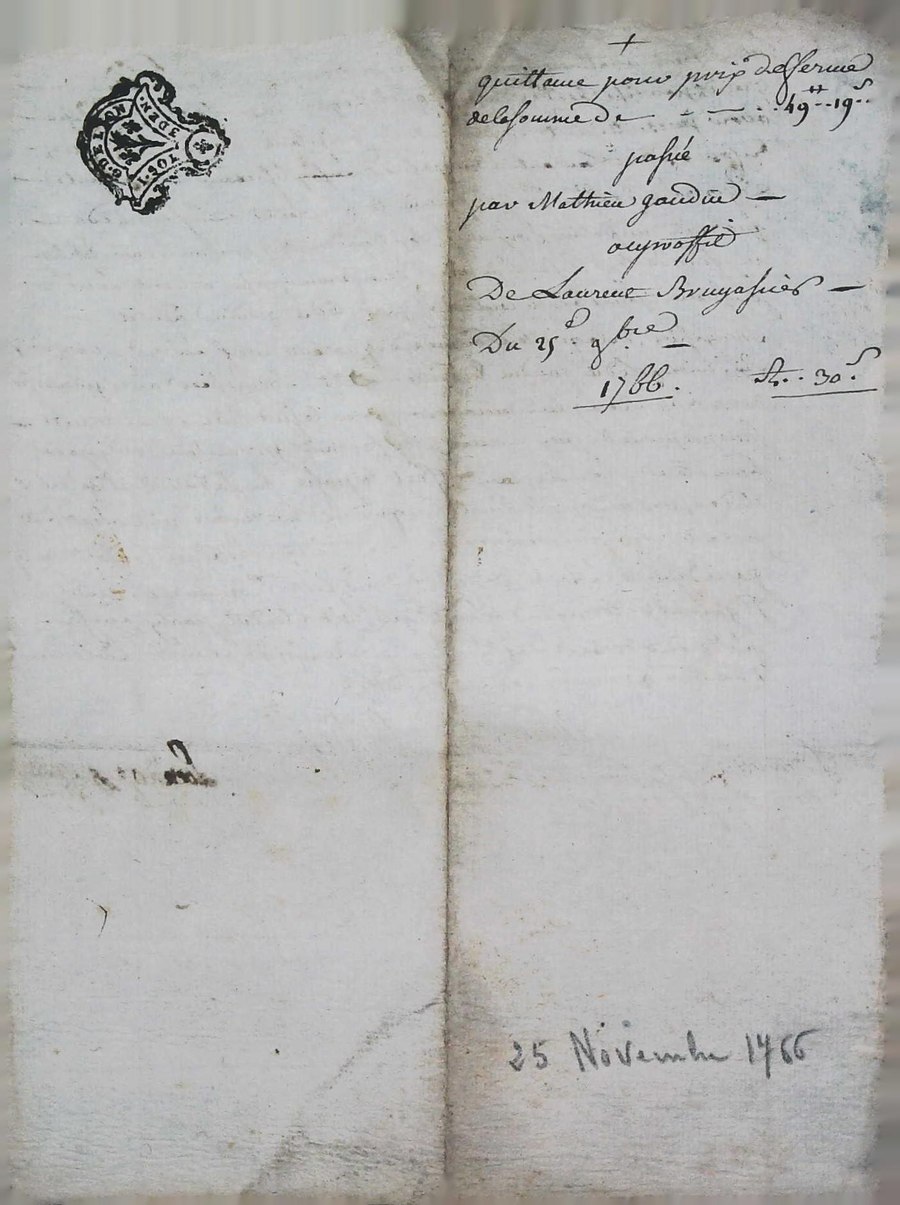 G. DE LYON
1. SOL
3 DEN.
+
quittance pour prix defferme
delasomme de - - - 49 ₶ 19 s
passée
par Mathieu gaudin —
auproffit
De Laurent Bruyassies —
Du 25e 9bre —
1766. 30 s
25 Novembre 1766